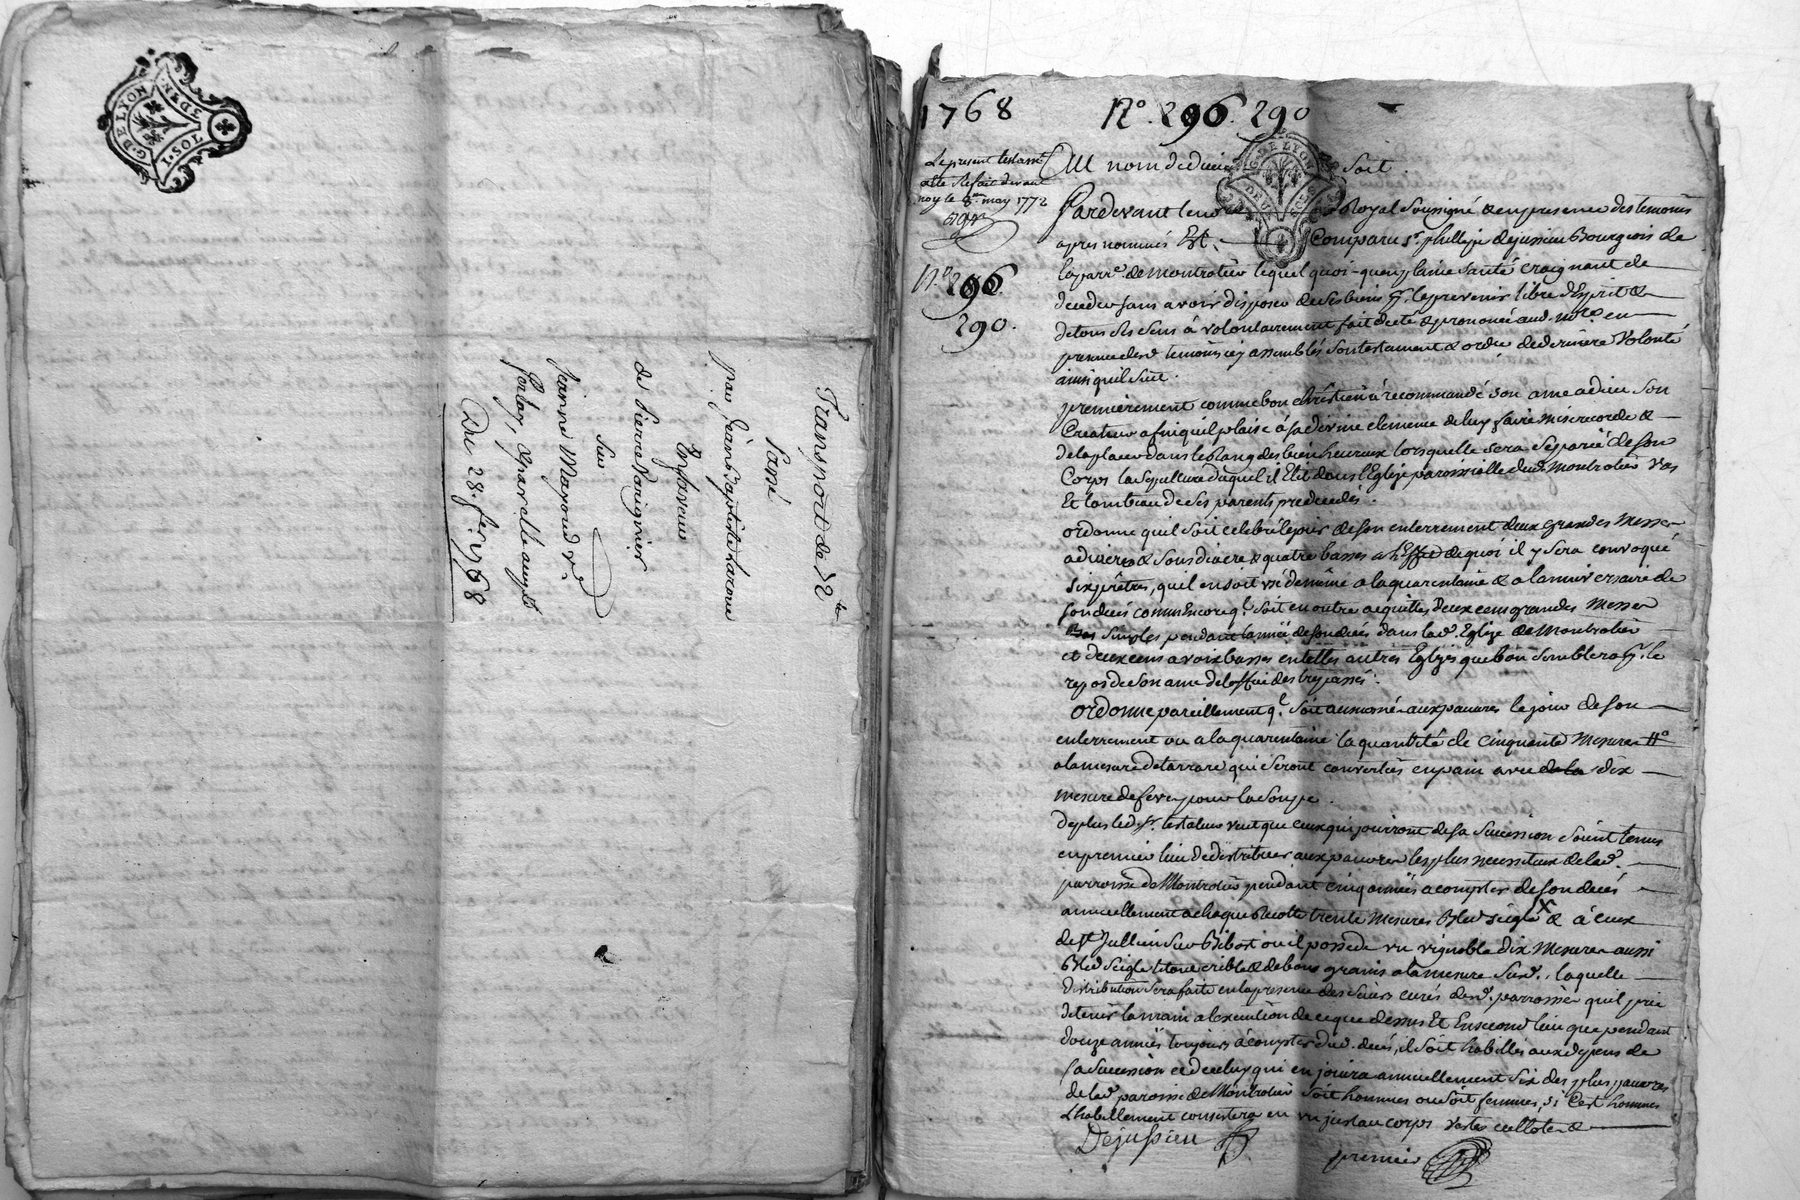 G. DE LYON
Transport de 72 ₶
Passé
par Jean Baptiste Laroue
En faveur
de Pierre Varignier
Sur
Jeanne Mayoud vᵉ
Du 28. fev. 1768
1768 N° 296. 290
Le present testament
a esté Refait devant
moy le 8. may 1772
N° 296
290.
Au nom de dieu soit.
Pardevant le no Royal Soussigné & en presence des temoins
apres nommés Est Comparu Sr. phillipe dejussieu Bourgeois de
la parr.e de montrotier lequel quoi-qu'en plaine santé craignant de
deceder sans avoir disposer de ses biens pr. le prevenir libre d'Esprit &
de tous ses sens à volontairement fait dicté & prononcé aud. no.re en
presence desd. temoins icy assemblés son testament & ordre de derniere Volonté
ainsi quil suit.
premierement comme bon chrêtien à recommandé son ame a dieu son
Createur afin quil plaise à sa divine clemence de luy faire misericorde &
de la placer dans le Rang des bien heureux lorsquelle sera separée de son
Corps la sepulture duquel il Elit dans l'Eglise paroissialle dud. montrotier
Et tombeau de ses parents predecedés.
ordonne quil soit celebré le jour de son enterrement deux grandes Messes
a diacre & sous diacre & quatre basses a l'effet de quoi il y sera convoqué
six prêtres, quil en soit usé de même a la quarantaine & a lanniversaire de
son decés comm'Encore q.l soit en outre acquitté deux cens grandes Messes
simples pendant lannée de son decés dans lad. Eglize de Montrotier
et deux cens a voix basses en telles autres Eglises que bon semblera pr. le
repos de son ame de des trepassés.
ordonne pareillement q.l soit aumoné aux pauvres le jour de son
enterrement ou a la quarantaine la quantité de cinquante Mesures
a la mesure de tarrare qui seront converties en pain avec de la dix
mesure de feves pour la soupe.
de plus led. Sr. testateur veut que ceux qui jouiront de sa succession soient tenus
en premier lieu de distribuer aux pauvres les plus necessiteux de lad.
parroisse de Montrotier pendant cinq années a compter de son decés
annuellement a chaque Recolte trente mesures Bled seigle & à ceux
de St. Jullien sur Bibost ou il possede un vignoble dix Mesures aussi
Bled seigle le tout criblé & de bons grains a la mesure Susd. laquelle
distribution sera faite en la presence des sieurs curés desd. parroisses quil prie
de tenir la main a l'execution de ce que dessus Et En second lieu que pendant
douze années toujours à compter dud. decés, il soit habillés aux depens de
sa succession et de celuy qui en jouira annuellement six des plus pauvres
de lad. paroisse de Montrotier soit hommes ou soit femmes, si c'est hommes
l'habillement consistera en un justaucorps veste cullote &
Dejussieu
premier